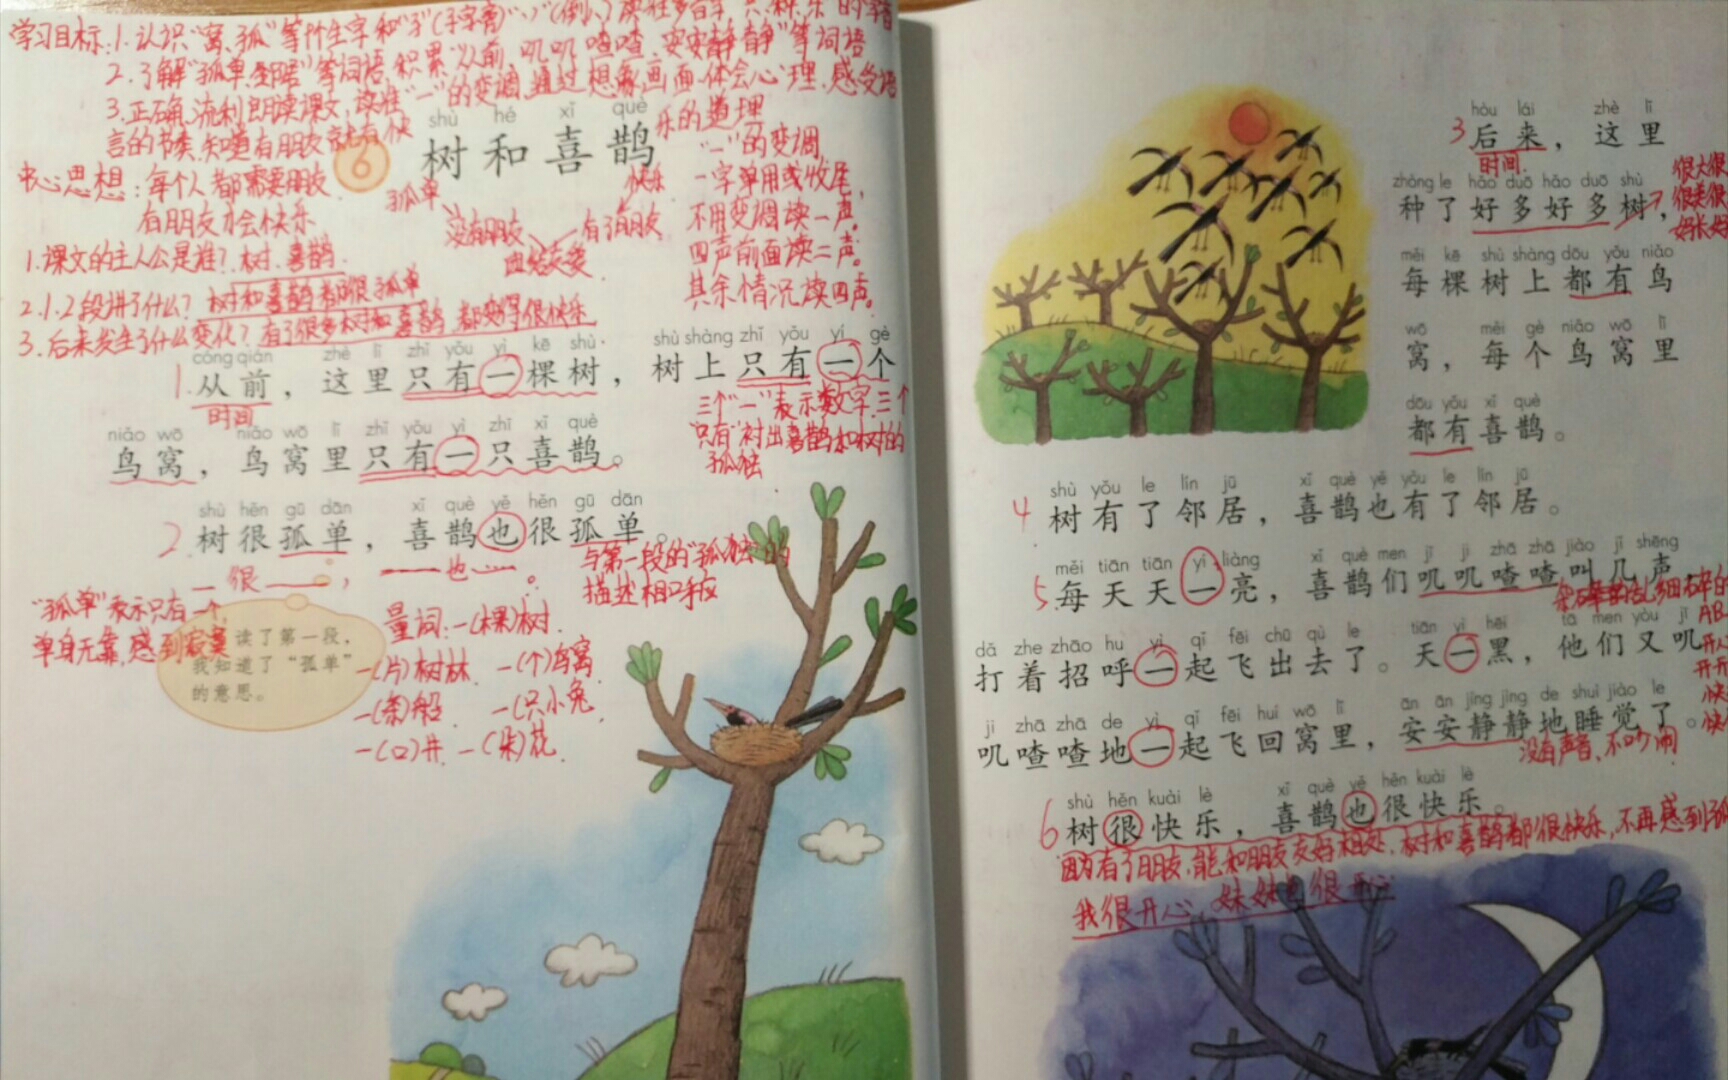 学习目标:1.认识"窝、孤"等
2.了解"孤单、邻居"等词语,积累"从前、叽叽喳喳、安安静静"等词语
3.正确、流利朗读课文,读准"一"的变调,通过想象画面,体会心理,感受语
言的节奏,知道有朋友就有快
乐的道理
shù hé xǐ què
6 树和喜鹊
中心思想:每个人都需要朋友
有朋友才会快乐
孤单
没有朋友
快乐
有了朋友
"一"的变调
一字单用或收尾,
不用变调读一声。
四声前面读二声。
其余情况读四声。
1.课文的主人公是谁?树、喜鹊
2.1.2段讲了什么?树和喜鹊都很孤单
3.后来发生了什么变化?有了很多树和喜鹊,都变得很快乐
cóng qián zhè lǐ zhǐ yǒu yì kē shù shù shàng zhǐ yǒu yí gè
1.从前,这里只有一棵树,树上只有一个
时间
三个"一"表示数字,三个
"只有"衬出喜鹊和树的
孤独
niǎo wō niǎo wō lǐ zhǐ yǒu yì zhī xǐ què
鸟窝,鸟窝里只有一只喜鹊。
shù hěn gū dān xǐ què yě hěn gū dān
2.树很孤单,喜鹊也很孤单。
很 , 也 。
与第一段的"孤独"的
描述相呼应
"孤单"表示只有一个,
单身无靠,感到寂寞
读了第一段,
我知道了"孤单"
的意思。
量词:一(棵)树
一(片)树林 一(个)鸟窝
一(条)船 一(只)小兔
一(口)井 一(朵)花
hòu lái zhè lǐ
3后来,这里
时间
zhòng le hǎo duō hǎo duō shù
种了好多好多树,
很大很
很美很
měi kē shù shàng dōu yǒu niǎo
每棵树上都有鸟
wō měi gè niǎo wō lǐ
窝,每个鸟窝里
dōu yǒu xǐ què
都有喜鹊。
shù yǒu le lín jū xǐ què yě yǒu le lín jū
4树有了邻居,喜鹊也有了邻居。
měi tiān tiān yí liàng xǐ què men jī ji zhā zhā jiào jǐ shēng
5.每天天一亮,喜鹊们叽叽喳喳叫几声,
dǎ zhe zhāo hu yì qǐ fēi chū qù le tiān yì hēi tā men yòu jī
打着招呼一起飞出去了。天一黑,他们又叽
ji zhā zhā de yì qǐ fēi huí wō lǐ ān ān jìng jìng de shuì jiào le
叽喳喳地一起飞回窝里,安安静静地睡觉了。
没有声音、不吵闹
shù hěn kuài lè xǐ què yě hěn kuài lè
6树很快乐,喜鹊也很快乐。
因为有了朋友,能和朋友友好相处,树和喜鹊都很快乐,不再感到孤
我很开心 妹妹也很开心